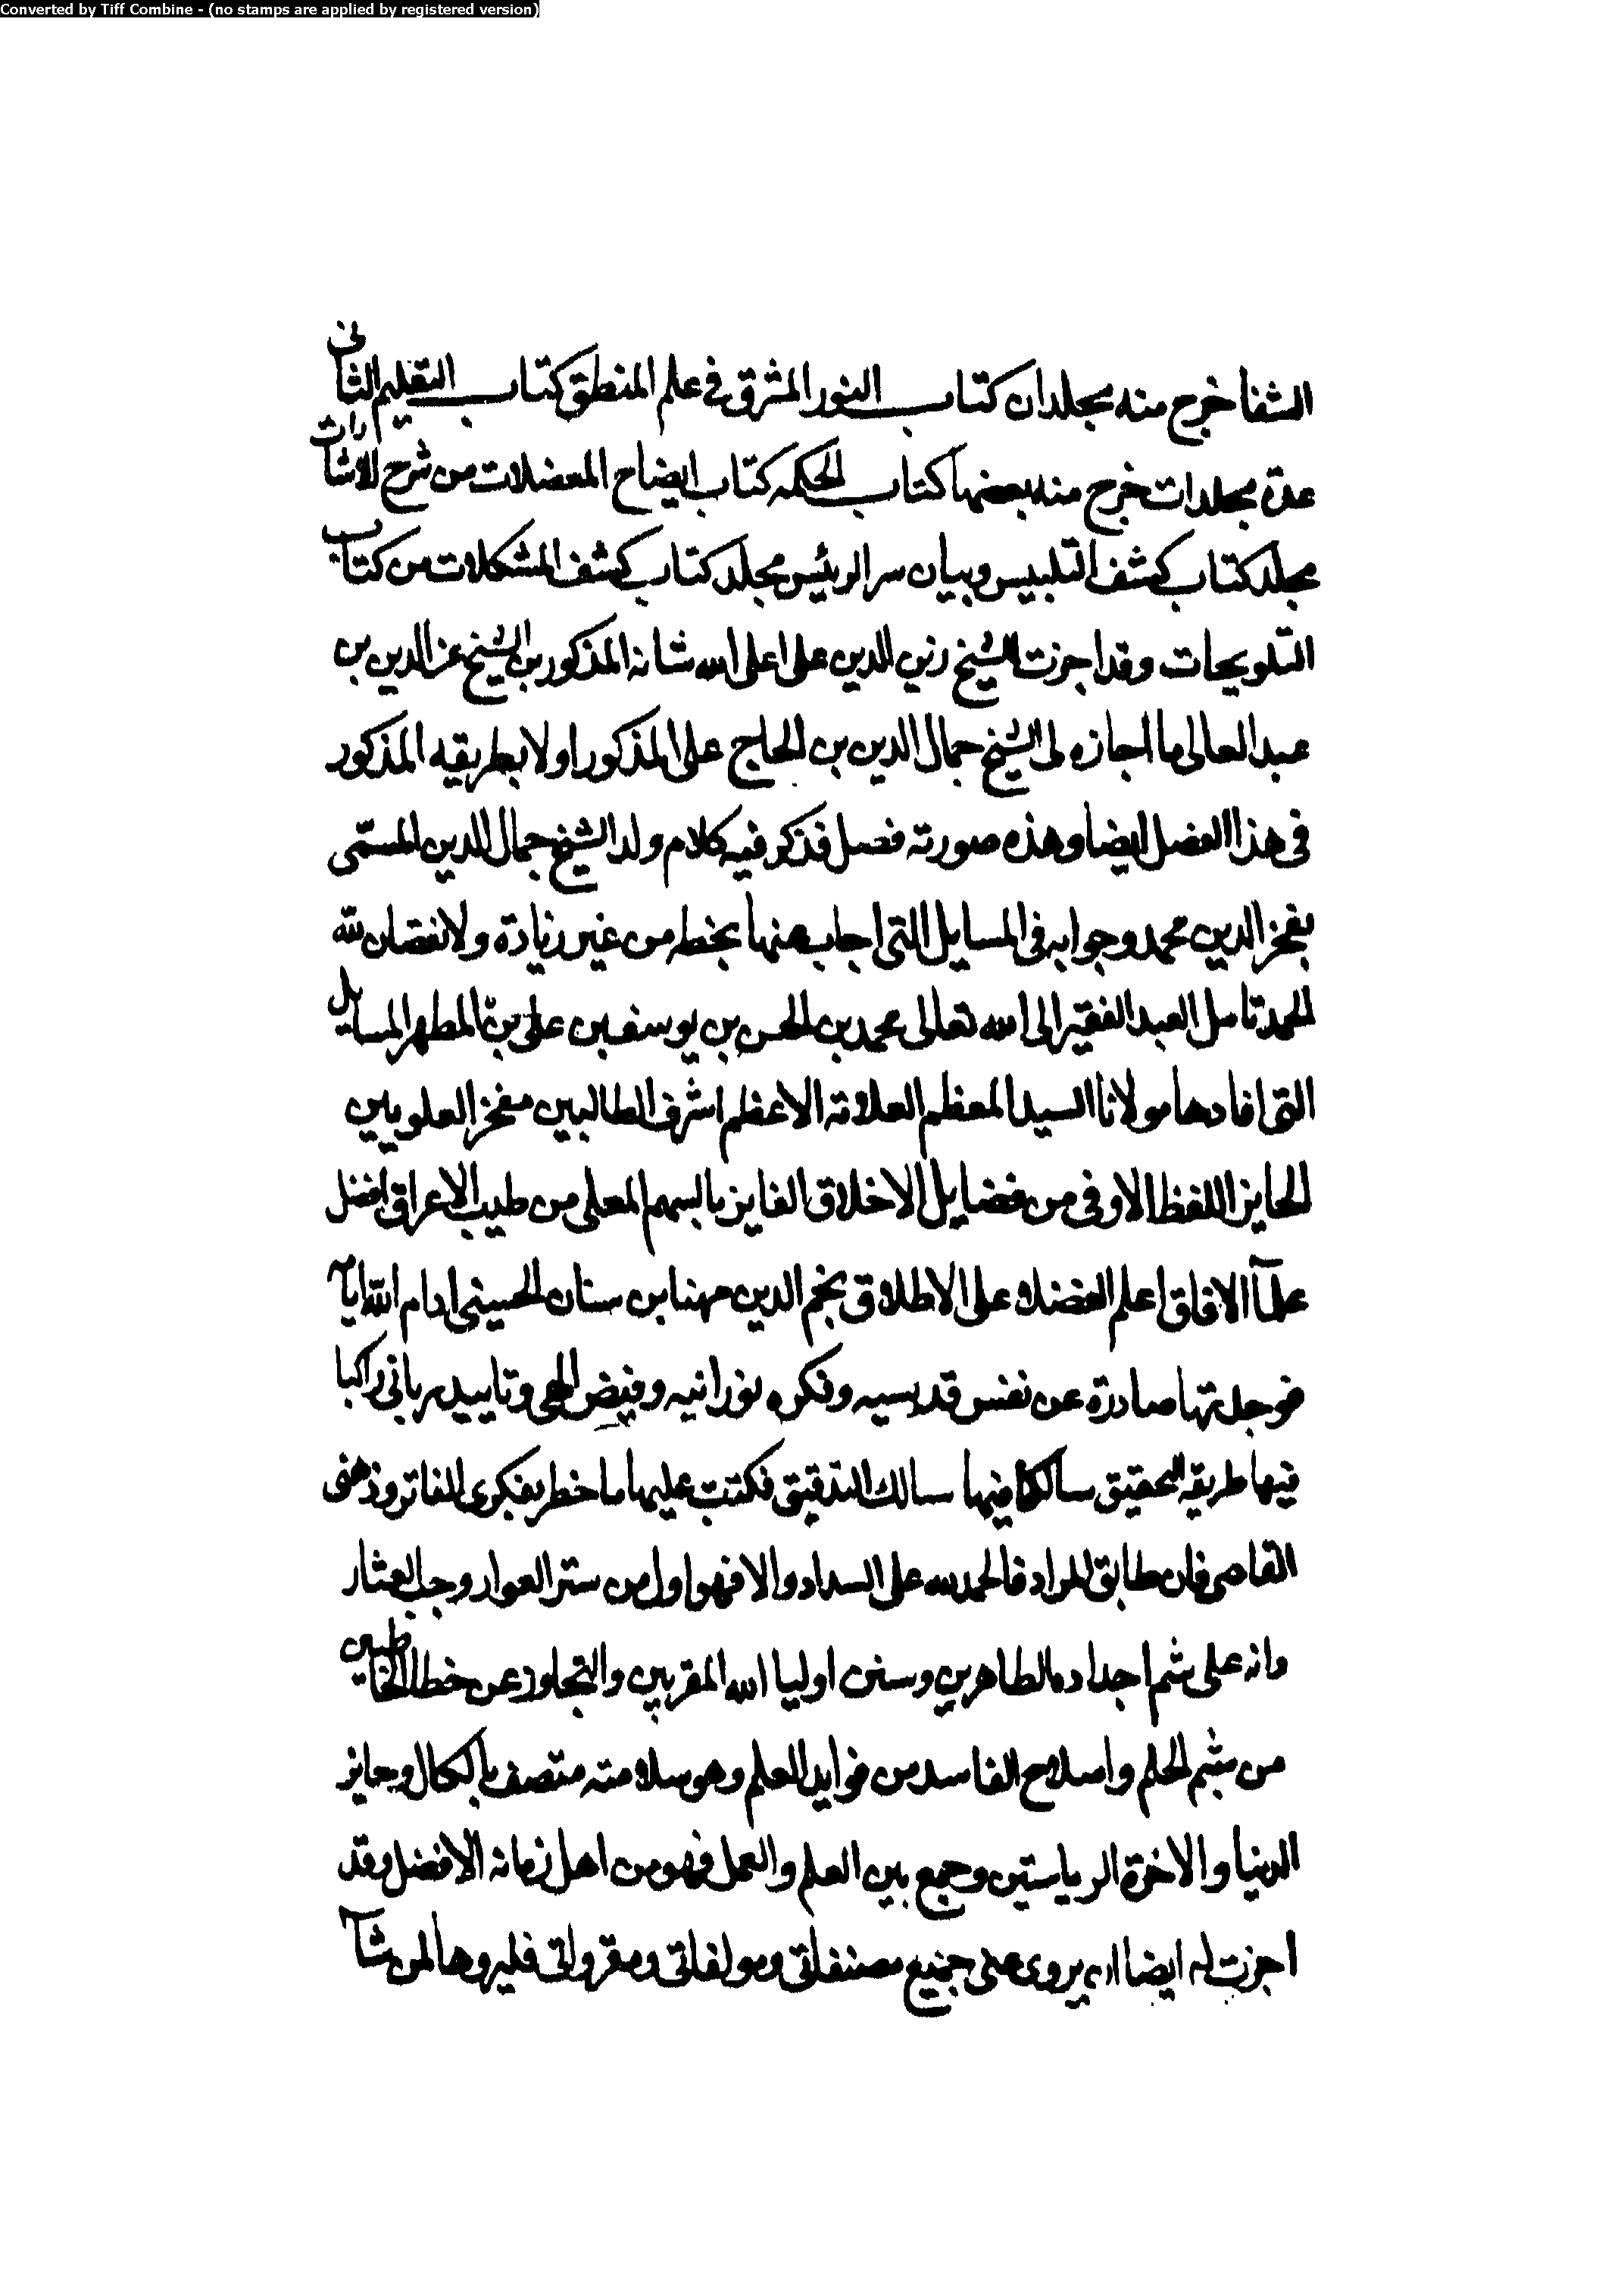 Converted by Tiff Combine - (no stamps are applied by registered version)
الشفا خرج منه مجلدان كتاب النور المشرق في علم المنطق كتاب التعليم الثاني
عدة مجلدات خرج منه بعضها كتاب الحكمه كتاب ايضاح المعضلات من شرح الاشارات
مجلد كتاب كشف التلبيس وبيان سر الرئيس مجلد كتاب كشف المشكلات من كتاب
التلويحات وقد اجزت للشيخ زين الدين على اعلى الله شانه المذكور بن الشيخ عز الدين بن
عبد العالى ما اجازه لى الشيخ جمال الدين بن الحاج على المذكور اولا بطريقه المذكور
فى هذا الفصل ايضا وهذه صورته فصل فذكر فيه كلام ولد الشيخ جمال الدين المسمى
بفخر الدين محمد وجوابه فى المسايل التى اجاب عنها بخطه من غير زيادة ولا نقصان لله
الحمد تامل العبد الفقير الى الله تعالى محمد بن الحسن بن يوسف بن على بن المطهر المسايل
التى افادها مولانا السيد المعظم العلامة الاعظم اشرف الطالبين مفخر العلويين
الحايز اللفظ الاوفى من فضايل الاخلاق الفايز بالسهم المعلى من طيب الاعراق افضل
علمآ الافاق اعلم الفضلا على الاطلاق نجم الدين مهنا بن سنان الحسينى ادام الله ايامه
فوجدتها صادرة عن نفس قدسيه وفكره نورانيه وفيض الهى وتاييد ربانى راكبا
فيها طريقه التحقيق سالكا فيها سالك التدقيق فكتبت عليها ما خطر بفكرى الفاتر وذهنى
القاصر فان طابق المراد فالحمد لله على السداد والا فهو اول من ستر العوار وجبل العثار
وانه على شم اجداده الطاهرين وسنن اوليا الله المقربين والتجاوز عن خطا الخاطيين
من شيم الحلم واصلاح الفاسد من فوايد العلم وهو سلامته متصف بالكمال وحايز
الدنيا والاخرة الرياستين وجمع بين العلم والعمل فهو من اهل زمانه الافضل وقد
اجزت له ايضا ان يروى عنى جميع مصنفاتى ومولفاتى ومقرواتى فليروها لمن شآ